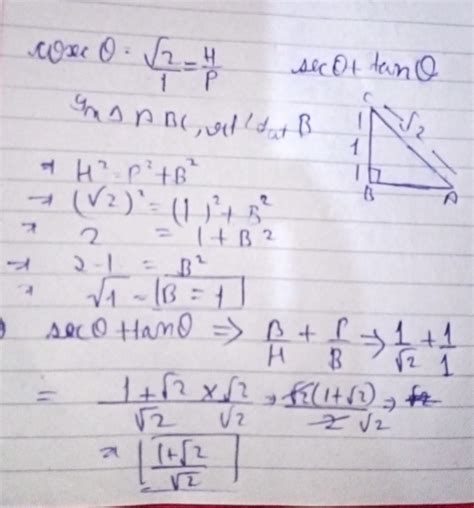 cosec θ = √2/1 = H/P    secθ + tanθ
In Δ ABC, at B
C
1
1
1
√2
B A
⇒ H² = P² + B²
→ (√2)² = (1)² + B²
→ 2 = 1 + B²
→ 2-1 = B²
→ √1 = B = 1
secθ + tanθ ⇒ B/H + P/B ⇒ 1/√2 + 1/1
= 1+√2/√2 × √2/√2 → √2(1+√2)/2 √2 →
⇒ 1+√2/√2